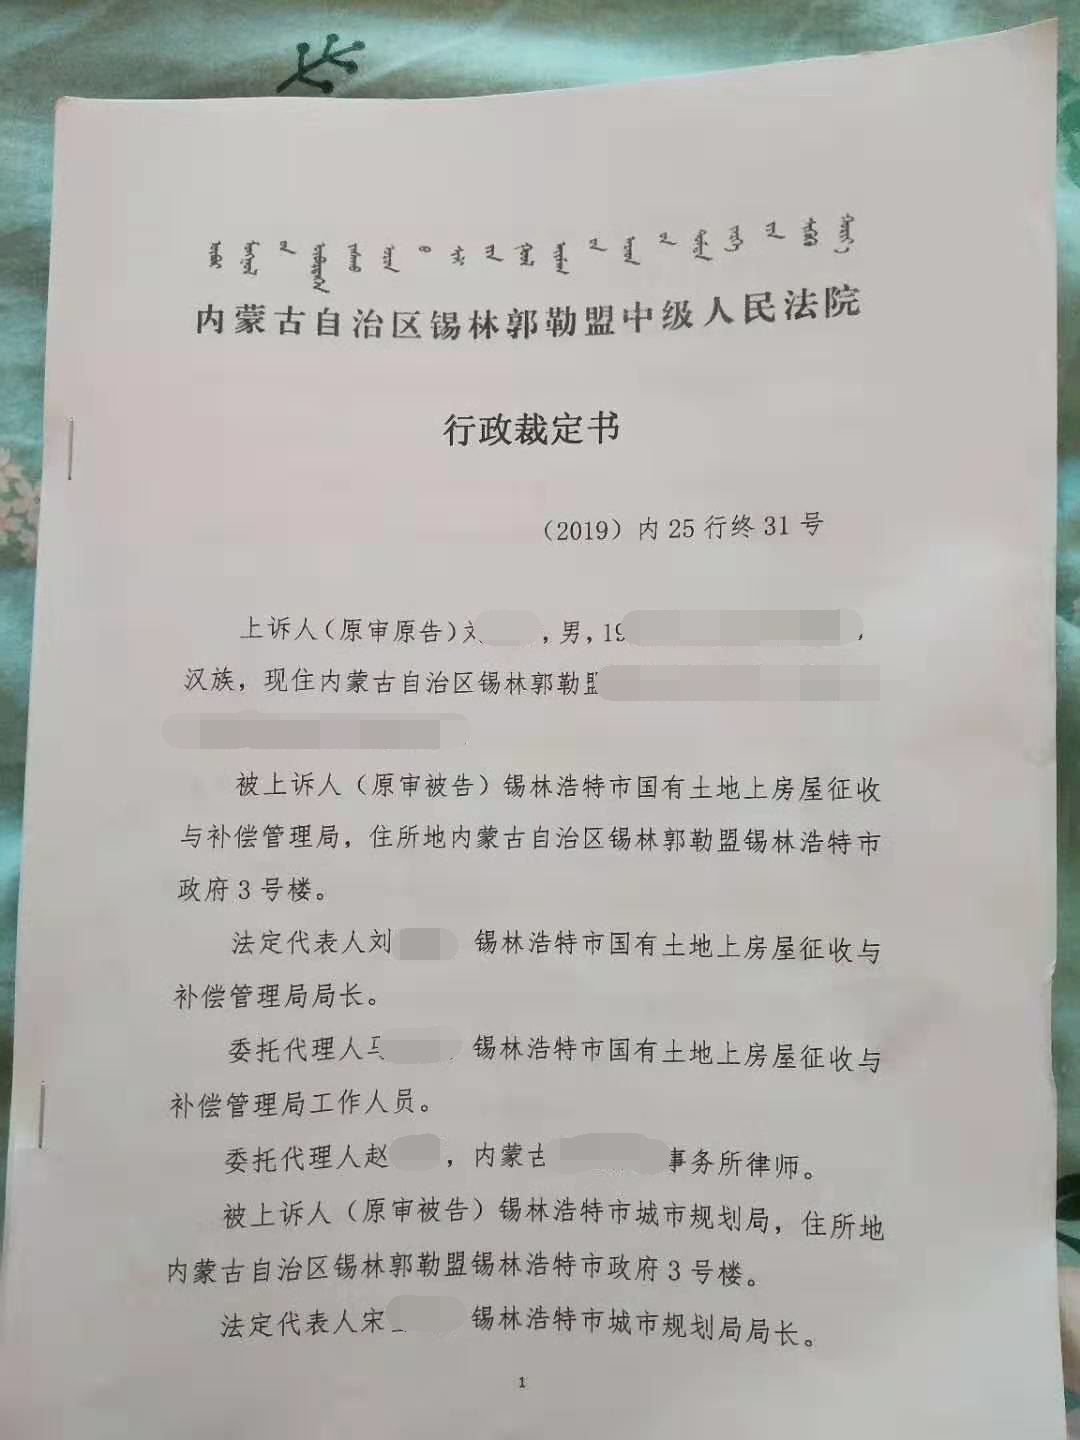 内蒙古自治区锡林郭勒盟中级人民法院
行政裁定书
（2019）内25行终31号
上诉人（原审原告）刘，男，19，
汉族，现住内蒙古自治区锡林郭勒盟
被上诉人（原审被告）锡林浩特市国有土地上房屋征收
与补偿管理局，住所地内蒙古自治区锡林郭勒盟锡林浩特市
政府3号楼。
法定代表人刘 锡林浩特市国有土地上房屋征收与
补偿管理局局长。
委托代理人马 锡林浩特市国有土地上房屋征收与
补偿管理局工作人员。
委托代理人赵，内蒙古 事务所律师。
被上诉人（原审被告）锡林浩特市城市规划局，住所地
内蒙古自治区锡林郭勒盟锡林浩特市政府3号楼。
法定代表人宋 锡林浩特市城市规划局局长。
1